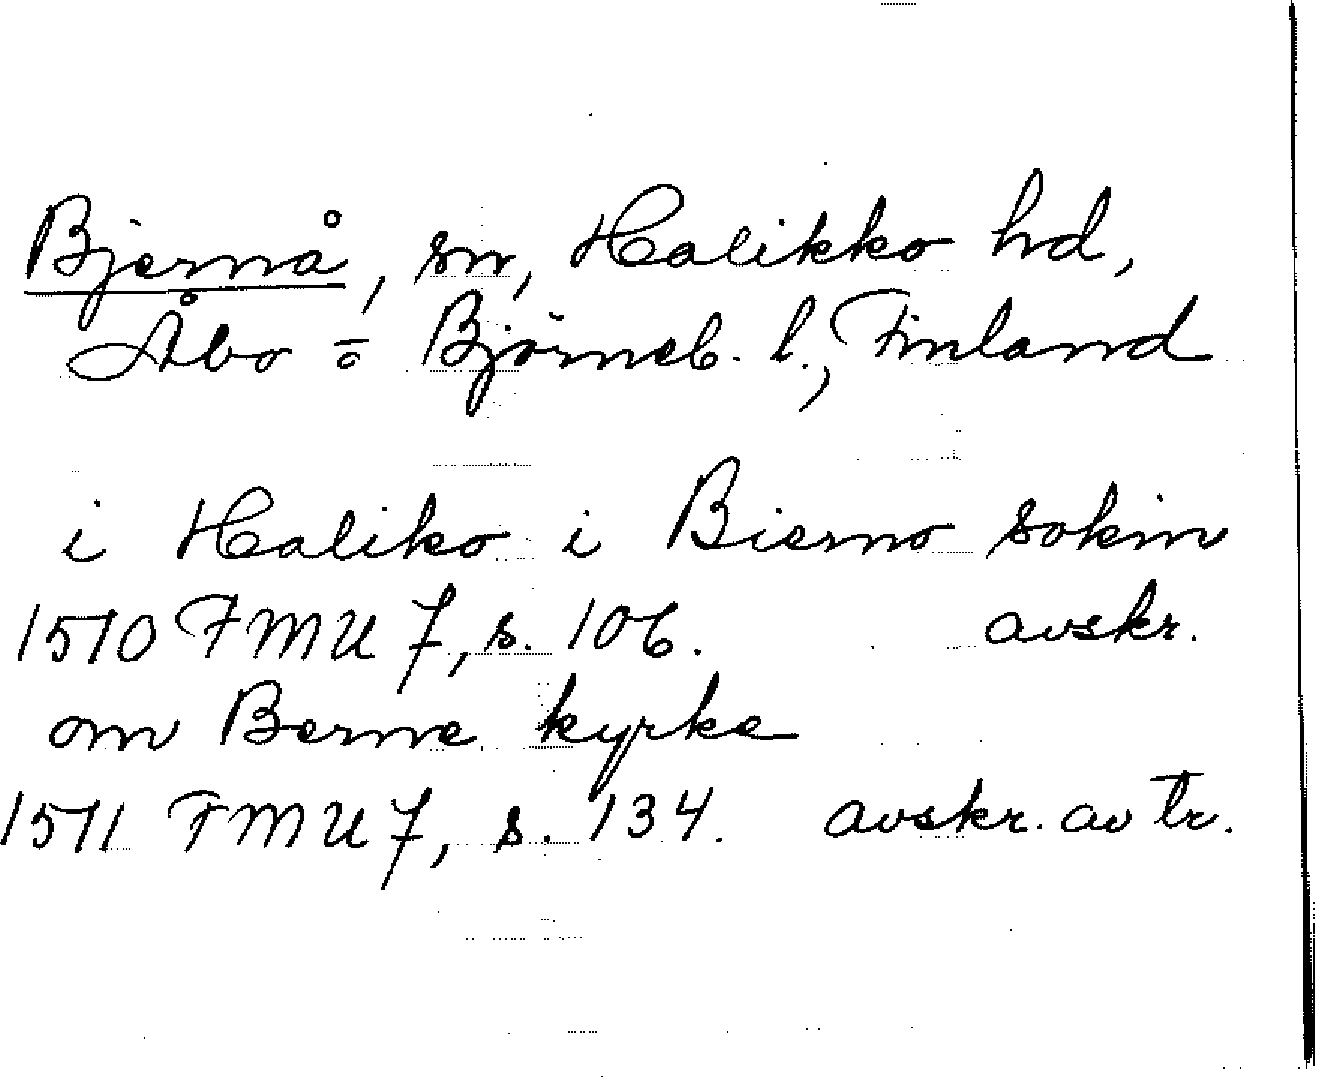 Bjernå, sn, Halikko hd,
Åbo o Björneb. l., Finland
i Haliko i Bierno sokin
1510 FMU 7, s. 106. avskr.
om Berne kyrke
1511 FMU 7, s. 134. avskr. av tr.